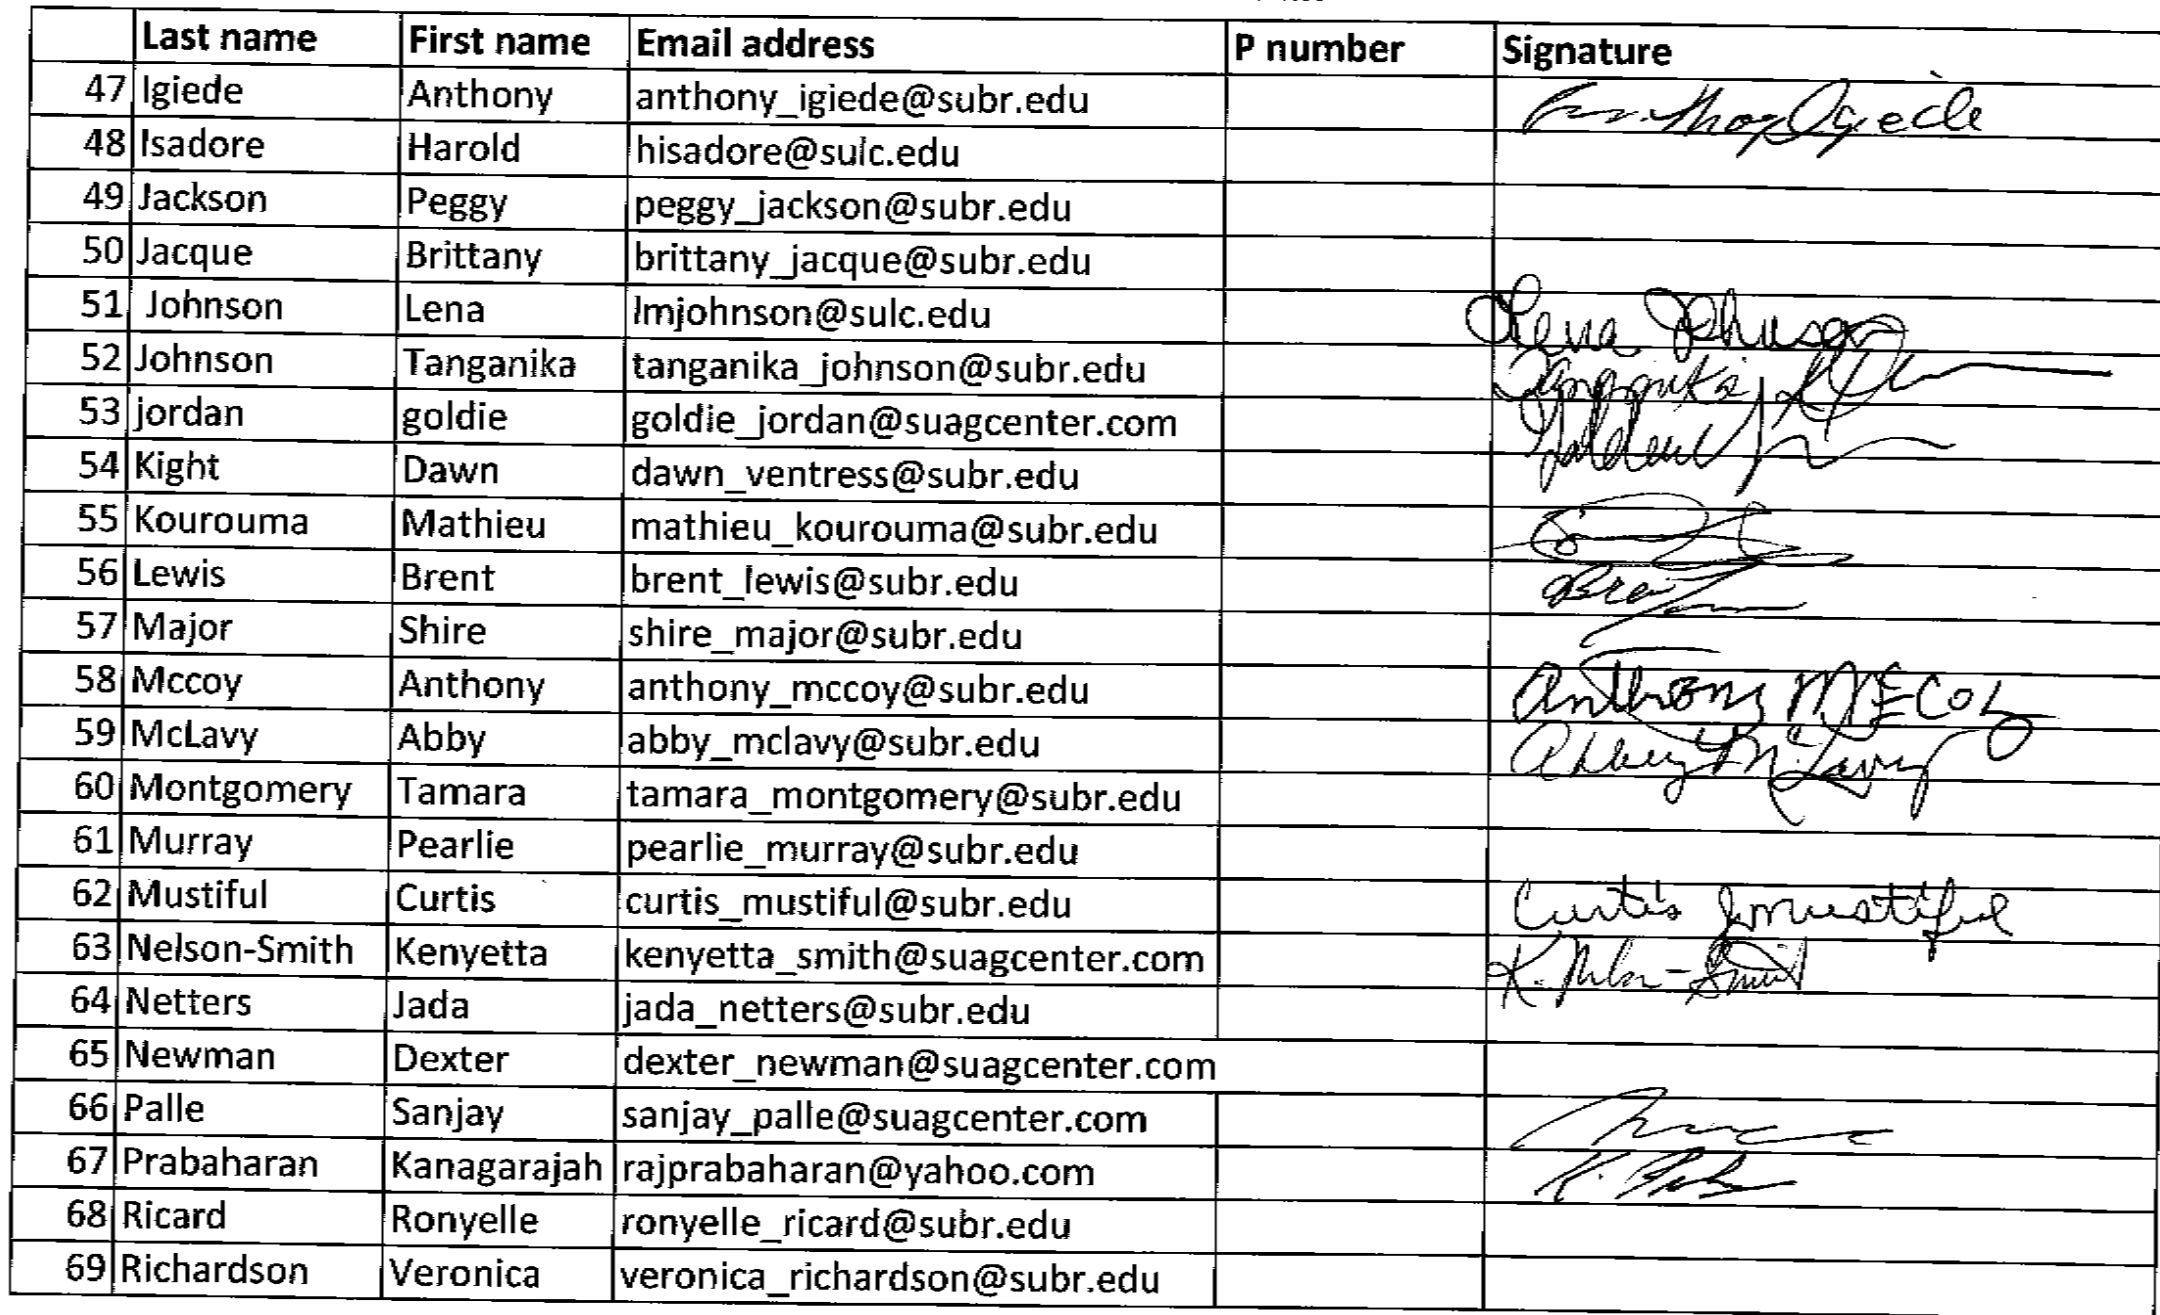 Last name First name Email address P number Signature
47 Igiede Anthony anthony_igiede@subr.edu Anthony Igiede
48 Isadore Harold hisadore@sulc.edu
49 Jackson Peggy peggy_jackson@subr.edu
50 Jacque Brittany brittany_jacque@subr.edu
51 Johnson Lena lmjohnson@sulc.edu Lena Johnson
52 Johnson Tanganika tanganika_johnson@subr.edu Tanganika
53 jordan goldie goldie_jordan@suagcenter.com
54 Kight Dawn dawn_ventress@subr.edu
55 Kourouma Mathieu mathieu_kourouma@subr.edu
56 Lewis Brent brent_lewis@subr.edu
57 Major Shire shire_major@subr.edu
58 Mccoy Anthony anthony_mccoy@subr.edu Anthony McCoy
59 McLavy Abby abby_mclavy@subr.edu Abby McLavy
60 Montgomery Tamara tamara_montgomery@subr.edu
61 Murray Pearlie pearlie_murray@subr.edu
62 Mustiful Curtis curtis_mustiful@subr.edu Curtis J Mustiful
63 Nelson-Smith Kenyetta kenyetta_smith@suagcenter.com K. Nelson-Smith
64 Netters Jada jada_netters@subr.edu
65 Newman Dexter dexter_newman@suagcenter.com
66 Palle Sanjay sanjay_palle@suagcenter.com
67 Prabaharan Kanagarajah rajprabaharan@yahoo.com
68 Ricard Ronyelle ronyelle_ricard@subr.edu
69 Richardson Veronica veronica_richardson@subr.edu